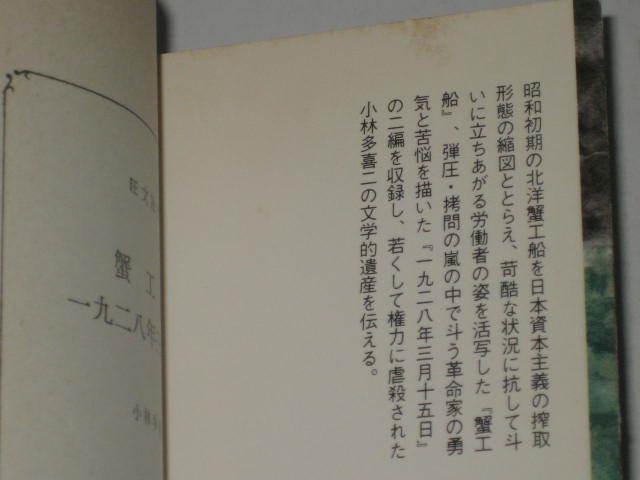 昭和初期の北洋蟹工船を日本資本主義の搾取
形態の縮図ととらえ、苛酷な状況に抗して斗
いに立ちあがる労働者の姿を活写した『蟹工
船』、弾圧・拷問の嵐の中で斗う革命家の勇
気と苦悩を描いた『一九二八年三月十五日』
の二編を収録し、若くして権力に虐殺された
小林多喜二の文学的遺産を伝える。
旺文
蟹工
一九二八年
小林